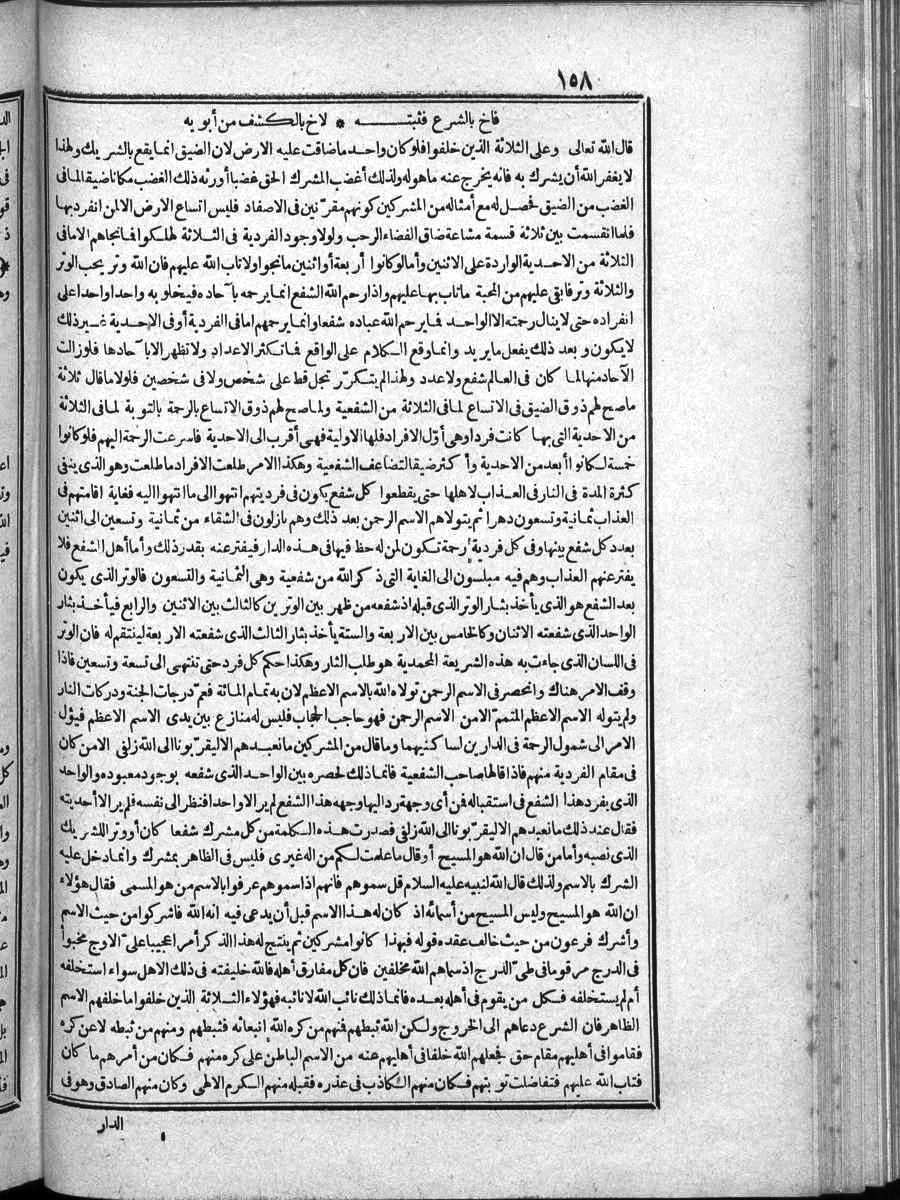 ١٥٨
فاخ بالشرع فثبته * لاخ بالكشف من أبويه
قال الله تعالى وعلى الثلاثة الذين خلفوا فلو كان واحد ما ضاقت عليه الارض لان الضيق انما يقع بالشريك ولهذا
لا يغفر الله أن يشرك به فانه يخرج عنه ما هو له ولذلك أغضب المشرك الحق غضبا أورثه ذلك الغضب مكانا ضيقا لما فى
الغضب من الضيق فحصل له مع أمثاله من المشركين كونهم مقرّنين فى الاصفاد فليس اتساع الارض الا لمن انفرد بها
فلما انقسمت بين ثلاثة قسمة مشاعة ضاق الفضاء الرحب ولولا وجود الفردية فى الثلاثة لهلكوا فما نجاهم الا ما فى
الثلاثة من الاحدية الواردة على الاثنين وأما لو كانوا أربعة أو اثنين ما نجوا ولا تاب الله عليهم فان الله وتر يحب الوتر
والثلاثة وتر فابقى عليهم من المحبة ما تاب بها عليهم واذا رحم الله الشفع انما يرحمه بآحاده فيخلو به واحدا واحدا على
انفراده حتى لا ينال رحمته الا الواحد فما يرحم الله عباده شفعا وانما يرحمهم اما فى الفردية أو فى الاحدية غير ذلك
لا يكون و بعد ذلك يفعل ما يريد وانما وقع الكلام على الواقع فما تكثر الاعداد ولا تظهر الا بآحادها فلو زالت
الآحاد منها لما كان فى العالم شفع ولا عدد ولهذا لم يتكرّر تجل قط على شخص ولا فى شخصين فلولا ما قال ثلاثة
ما صح لهم ذوق الضيق فى الاتساع لما فى الثلاثة من الشفعية ولما صح لهم ذوق الاتساع بالرحمة بالتوبة لما فى الثلاثة
من الاحدية التى بها كانت فردا وهى أوّل الافراد فلها الاولية فهى أقرب الى الاحدية فاسرعت الرحمة اليهم فلو كانوا
خمسة لكانوا أبعد من الاحدية وأكثر ضيقا لتضاعف الشفعية وهكذا الامر طلعت الافراد ما طلعت وهو الذى ينفى
كثرة المدة فى النار فى العذاب لاهلها حتى يقطعوا كل شفع يكون فى فرديتهم انتهوا الى ما انتهوا اليه فغاية اقامتهم فى
العذاب ثمانية وتسعون دهرا ثم يتولاهم الاسم الرحمن بعد ذلك وهم نازلون فى الشقاء من ثمانية وتسعين الى اثنين
بعدد كل شفع بينها وفى كل فردية رحمة تكون لمن له حظ فيها فى هذه الدار فيفتر عنه بقدر ذلك وأما أهل الشفع فلا
يفتر عنهم العذاب وهم فيه مبلسون الى الغاية التى ذكر الله من شفعية وهى الثمانية والتسعون فالوتر الذى يكون
بعد الشفع هو الذى يأخذ بثار الوتر الذى قبله اذ شفعه من ظهر بين الوترين كالثالث بين الاثنين والرابع فيأخذ بثار
الواحد الذى شفعته الاثنان وكالخامس بين الاربعة والستة يأخذ بثار الثالث الذى شفعته الاربعة لينتقم له فان الوتر
فى اللسان الذى جاءت به هذه الشريعة المحمدية هو طلب الثار وهكذا حكم كل فرد حتى تنتهى الى تسعة وتسعين فاذا
وقف الامر هناك وانحصر فى الاسم الرحمن تولاه الله بالاسم الاعظم لان به تمام المائة فعمّ درجات الجنة ودركات النار
ولم يتوله الاسم الاعظم المتمم الا من الاسم الرحمن فهو حاجب الحجاب فليس له منازع بين يدى الاسم الاعظم فيؤل
الامر الى شمول الرحمة فى الدارين لساكنيهما وما قال من المشركين ما نعبدهم الا ليقرّبونا الى الله زلفى الا من كان
فى مقام الفردية منهم فاذا قالها صاحب الشفعية فانما ذلك لحصره بين الواحد الذى شفعه بوجود معبوده والواحد
الذى يفرد هذا الشفع فى استقباله فمن أى وجهة رد اليها وجهه هذا الشفع لم ير الا واحدا فنظر الى نفسه فلم ير الا أحديته
فقال عند ذلك ما نعبدهم الا ليقرّبونا الى الله زلفى فصدرت هذه الكلمة من كل مشرك شفعا كان أو وتر اللشريك
الذى نصبه وأما من قال ان الله هو المسيح أو قال ما علمت لكم من اله غيرى فليس فى الظاهر بمشرك وانما دخل عليه
الشرك بالاسم ولذلك قال الله لنبيه عليه السلام قل سموهم فانهم اذا سموهم عرفوا بالاسم من هو المسمى فقال هؤلاء
ان الله هو المسيح وليس المسيح من أسمائه اذ كان له هذا الاسم قبل أن يدعى فيه انه الله فاشركوا من حيث الاسم
وأشرك فرعون من حيث خالف عقده قوله فبهذا كانوا مشركين ثم ينتج له هذا الذكر أمرا عجيبا على الاوج مخبوأ
فى الدرج مرقوما فى طىّ الدرج اذ سماهم الله مخلفين فان كل مفارق أهله فالله خليفته فى ذلك الاهل سواء استخلفه
أم لم يستخلفه فكل من يقوم فى أهله بعده فانما ذلك نائب الله لا نائبه فهؤلاء الثلاثة الذين خلفوا ما خلفهم الاسم
الظاهر فان الشرع دعاهم الى الخروج ولكن الله ثبطهم فمنهم من كره الله انبعاثه فثبطهم ومنهم من ثبطه لا عن كره
فقاموا فى أهليهم مقام حق فجعلهم الله خلفا فى أهليهم عنه من الاسم الباطن على كره منهم فكان من أمرهم ما كان
فتاب الله عليهم فتفاضلت توبتهم فكان منهم الكاذب فى عذره فقبله منهم الكرم الالهى وكان منهم الصادق وهو فى
الدار